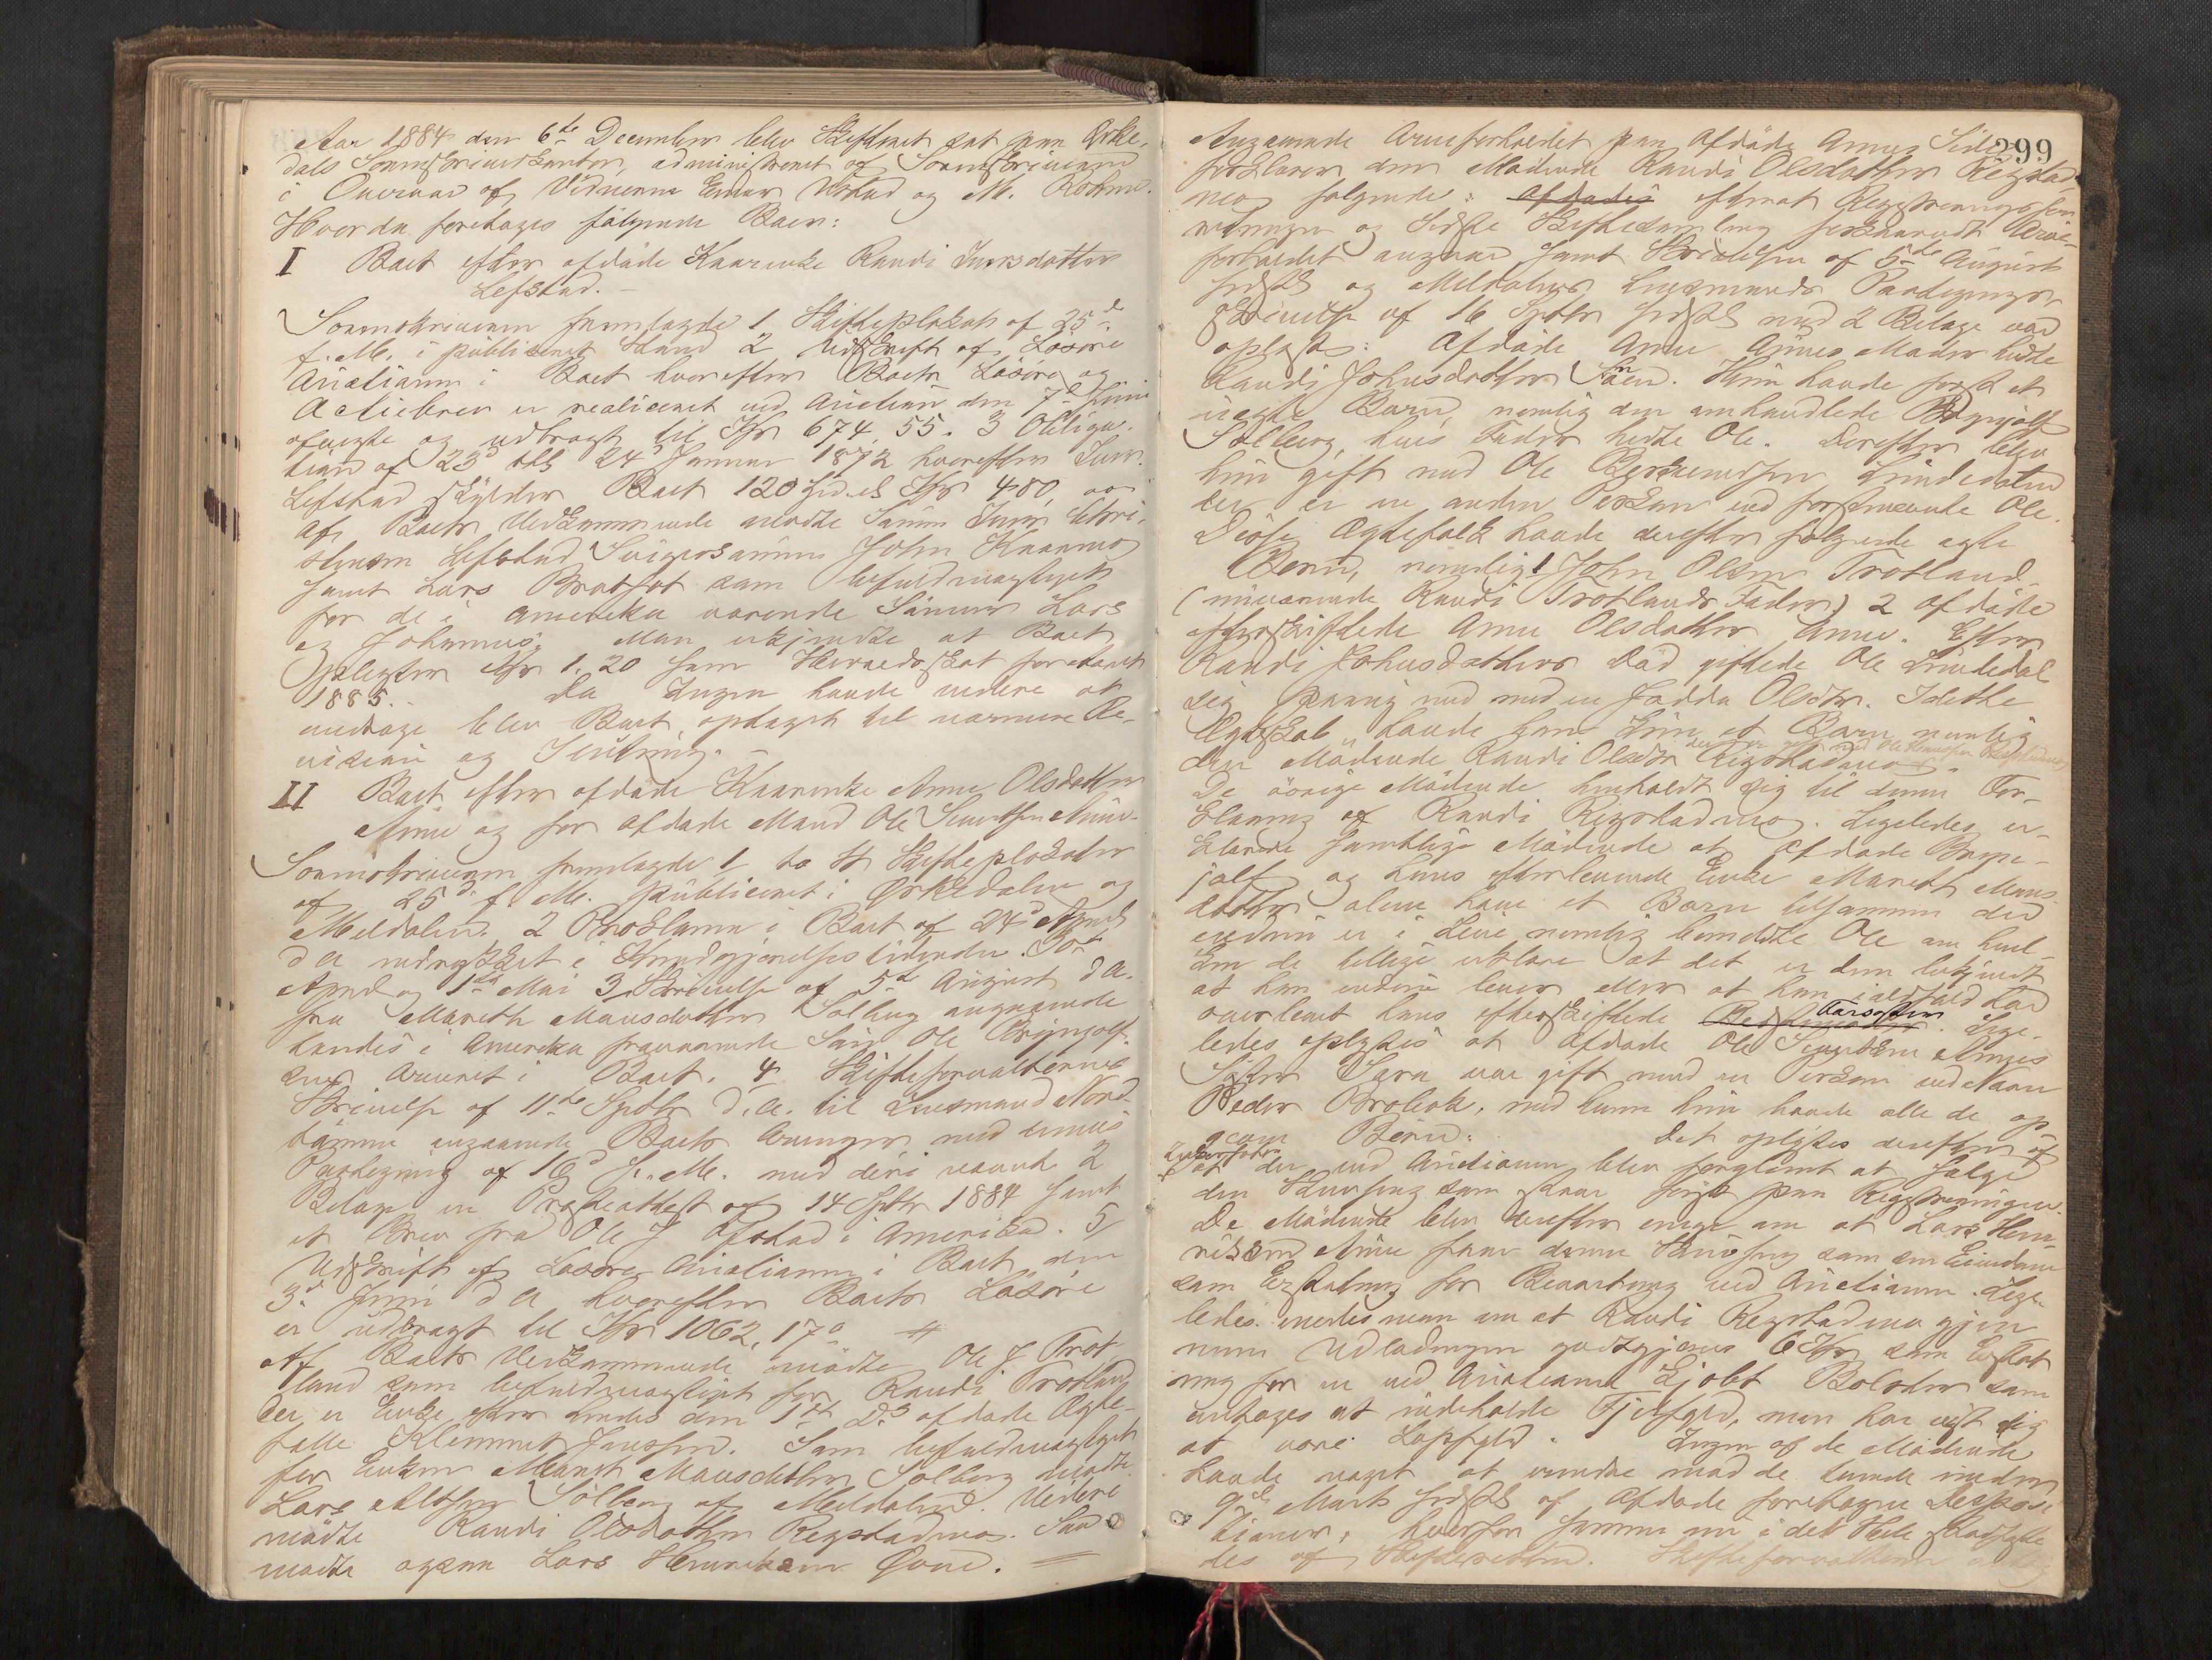 Aar 1884 den 6te December blev Skifteret sat paa Orke-
dals Sorenskriverkontor, administreret af Sorenskriveren
i Overvær af Vidnerne Einar Ustad og M. Rohme.
Hvorda foretoges følgende Boer:
I Boet efter afdøde Kaarenke Randi Iversdatter
Lefstad. —
Sorenskriveren fremlagde 1 Skifteplakat af 25de
f. M. i publiceret Stand 2 Udskrift af Løsøre
Auctionen i Boet hvorefter Boets Løsøre og
Actiebrev er realiceret ved Auction den 7de Juni
og udbragt til Kr 674, 55. 3 Obliga-
tion af 23d tgl 24d Januar 1872 hvorefter Iver
Lefstad skylder Boet 120 Spd eller Kr 480,
Af Boets Vedkommende mødte Sønnen Iver
Lefstad Svigersønnen John Kaarmo
samt Lars Bratset som befuldmægtiget
for de i Amerika værende Sønner Lars
og Johannes. Man erkjendte at Boet
pligter Kr 1.20 som Herredsskat for Aaret
1885. Da Ingen havde videre at
andrage blev Boet optaget til nærmere Re-
vision og Slutning. —
II Boet efter afdøde Kaarenke Anne Olsdatter
Aune og før afdøde Mand Ole Sivertsen Aune.
Sorenskriveren fremlagde 1 to St Skifteplakater
af 25d f. M. publiceret i Orkedalen og
Meldalen. 2 Proklama i Boet af 24d April
d A indrykket i Kundgjørelsestidende 30te
April og 1ste Mai 3 Skrivelse af 5te August d A.
fra Mareth Mansdatter Solberg angaaende
hendes i Amerika fraværende Søn Ole Brynjolf-
sens Arveret i Boet. 4 Skifteforvalterens
Skrivelse af 11te Septbr d. A. til Lensmand Nord-
angaaende Boets Arvinger med dennes
Paategning af 16d s. M. med deri nævnte 2
Bilage en Præsteattest af 14 Septbr 1884 samt
et Brev fra Ole J Ofstad i Amerika. 5
Udskrift af Løsøre Auctionen i Boet den
3d Juni d A hvorefter Boets Løsøre
er udbragt til Kr 1062, 17 ø
Af Boets Vedkommende mødte Ole J Trot-
land som befuldmægtiget for Randi Trotland
der er Enke efter hendes den 1st d.s afdøde Ægte-
fælle Klemmet Jensen. Som befuldmægtiget
for Enken Mareth Mansdatter Solberg mødte
Lars Olsen Solberg af Meldalen. Videre
mødte Randi Olsdatter Regstadmo. Saa
mødte ogsaa Lars Henriksen Aune.
299
Angaaende Arveforholdet paa afdøde Annes Side
forklarer den Mødende Randi Olsdatter Regstad-
mo følgende: Afdødes efterat Registreringsfor
retningen og sidste Skiftesamling forsaavidt Arve-
forholdet angaar samt Skrivelsen af 5te August
sidstl og Meldalens Lensmands Paategnings
skrivelse af 16 Septbr sidstl med 2 Bilage var
oplæst: Afdøde Anne Aunes Moder hedte
Randi Johnsdatter Søen. Hun havde først et
uægte Barn, nemlig den omhandlede Brynjolf
Solberg, hvis Fader hedte Ole. Derefter blev
hun gift med Ole Lindedalen
der er en anden Person end forstnævnte Ole.
Disse Ægtefolk havde derefter følgende ægte
Børn, nemlig 1 John Olsen Trotland
(nuværende Randi Trotlands Fader) 2 afdøde
efterskiftede Anne Olsdatter Aune. Efter
Randi Johnsdatters Død giftede Ole Lindedal
sig paany med en Jødda Olsdtr. I dette
Ægteskab havde han kun et Barn nemlig
den Mødende Randi Olsdtr Regstadmo.
De øvrige Mødende henholdt sig til denne For-
klaring af Randi Regstadmo. Ligeledes er-
klærede samtlige Mødende at afdøde Brynj-
jolf og hans efterlevende Enke Mareth Mans-
datter alene have et Barn tilsammen der
endnu er i Live nemlig bemeldte Ole om hvil-
ken de tillige erklære at det er dem bekjendt
at han endnu lever eller at han ialfald har
overlevet hans efterskiftede Farsøster. Lige-
ledes oplystes at afdøde Ole Sivertsen Aunes
Søster Sara var gift med en Person ved Navn
Peder Brobak, med ham hun havde alle de op
givne Børn: Det oplystes derefter
at der ved Auctionen blev forglemt at sælge
den som staar først paa Registreringen.
De Mødende blev derefter enige om at Lars Hen-
riksen Aune faar denne som sin Eiendom
som Erstatning for Bevertning ved Auctionen. Lige-
ledes enedes man om at Randi Regstadmo gjen-
nem Udlodningen godtgjøres 6 Kr som Erstat-
ning for en ved Auctionen kjøbt Bolster som
antoges at indeholde Fjerfyld, men har vist sig
at være Lapfyld. Ingen af de Mødende
havde noget at erindre mod de under
9de Marts sidstl af Afdøde foretagne Disposi-
tioner, hvorfor samme nu i det Hele stadfæste-
des af Skifteretten. Skifteforvalteren